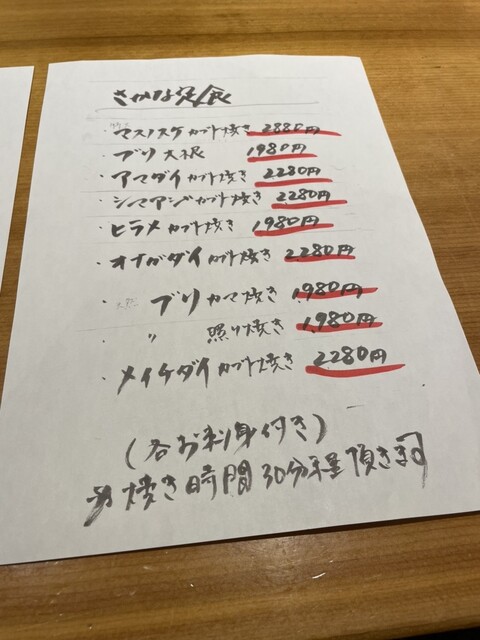 さかな定食
特大
・マスノスケカブト焼き 2880円
・ブリ大根 1980円
・アマダイカブト焼き 2280円
・シマアジカブト焼き 2280円
・ヒラメカブト焼き 1980円
・オナガダイカブト焼き 2280円
・ブリカマ焼き 1,980円
・〃 照り焼き 1,980円
・メイチダイカブト焼き 2280円
(各お刺身付き)
焼き時間30分程頂きます